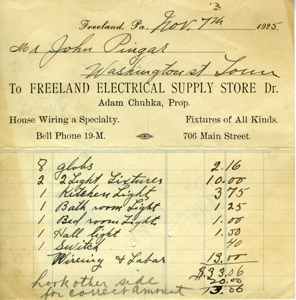 3
Freeland, Pa. Nov. 7th 1925
Mr John Pingar
Washington st Town
To FREELAND ELECTRICAL SUPPLY STORE Dr.
Adam Chuhka, Prop.
House Wiring a Specialty. Fixtures of All Kinds.
Bell Phone 19-M. 706 Main Street.
8 globs 2.16
2 2 Light Fixtures 10.00
1 Kitchen Light 3.75
1 Bath room Light 1.25
1 Bed room Light 1.00
1 Hall light 1.50
1 Switch 40
Wireing & Labar 13.00
$33.06
look other side
for correct amount